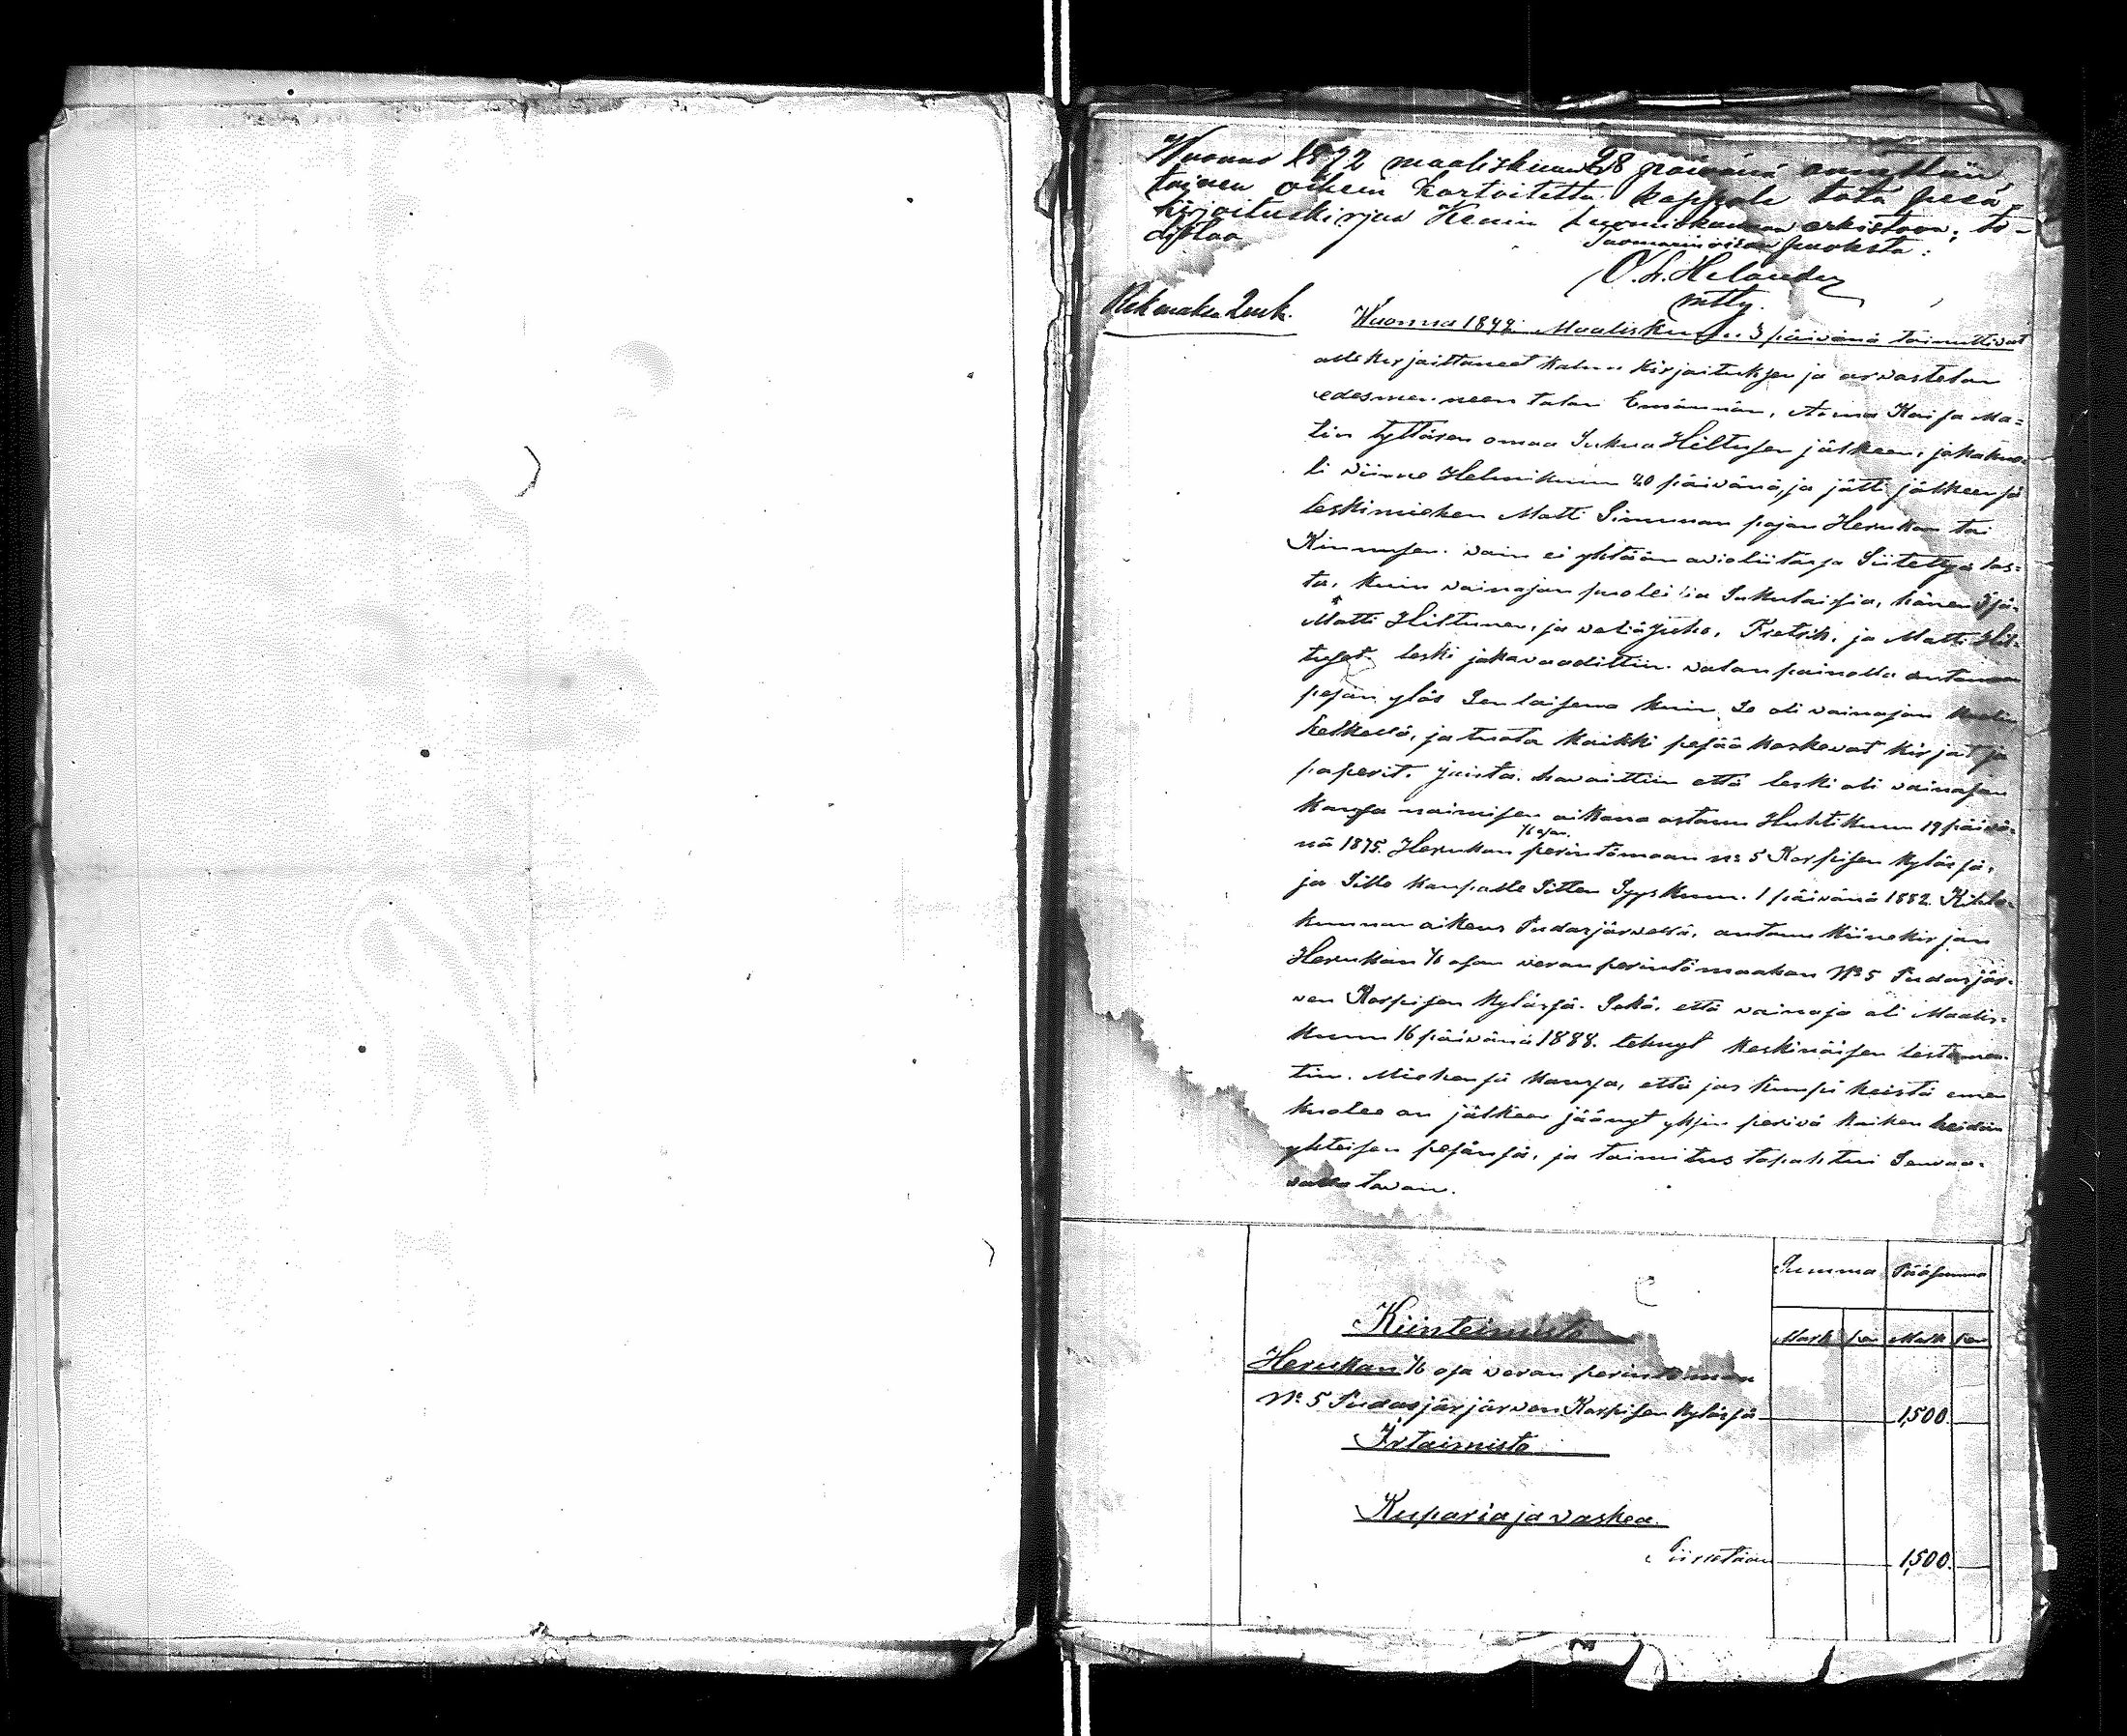 Wuonna 1892 maaliskuun 28 päivänä annettiin
toinen oikein kartoitettu kappale tätä pesä-
kirjoituskirjaa Kemin tuomiokunnan arkistoon; to-
distaa
Tuomarinviran puolesta:
O. L. Helander
Rek. maksu 2 mk.
Wuonna 1892 Maaliskuun 3 päivänä toimittivat
allekirjoittaneet kalun kirjoituksen ja arvostelun
edesmenneen talon Emännän, Anna Kaisa Ma-
tin tyttären omaa Sukua Hiltusen jälkeen, joka kuo-
li viime Helmikuun 20 päivänä, ja jätti jälkeensä
leskimiehen Matti Simunan pojan Herukan tai
Kinnusen. vain ei yhtään avioliitossa Siitettyä las-
ta, kuin vainajan puolei sia Sukulaisia, hänen Isä
Matti Hiltunen, ja veljä Juho, Fretrik, ja Matti Hil-
tuset. leski joka vaadittiin valan painolla antamaan
pesän ylös Senlaisena kuin Se oli vainajan kuolin
hetkellä, ja tuota kaikki pesää koskevat kirjat ja
paperit. joista havaittiin että leski oli vainajan
kanssa naimisen aikana ostanu Huhtikuun 19 päivä-
nä 1875. Herukan 1/6 osan perintömaan No 5 Korpisen kylässä,
ja Sille kaupalle Sitten Syyskuun 1 päivänä 1882 Kihla-
kunnan oikeus Pudasjärvellä, antanu kiinekirjan
Herukan 1/6 osan veran perintömaahan No 5 Pudasjär-
ven Korpisen kylässä. Sekä, että vainaja oli Maalis-
kuun 16 päivänä 1888. tehnyt keskinäisen testamen-
tin. Miehensä kanssa, että jos kumpi heistä ennen
kuolee on jälkeen jäänyt yksin perivä kaiken heidän
yhteisen pesänsä, ja toimitus tapahtui Seuraa-
valla tavan.
Summa Pääsumma
Mark pen Mark pen
Kiinteimistö
Herukan 1/6 osa veran perintömaa
No 5 Pudasjärjärven Korpisen kylässä 1,500.
Irtaimisto
Kuparia ja vaskea.
Siirretään 1,500.